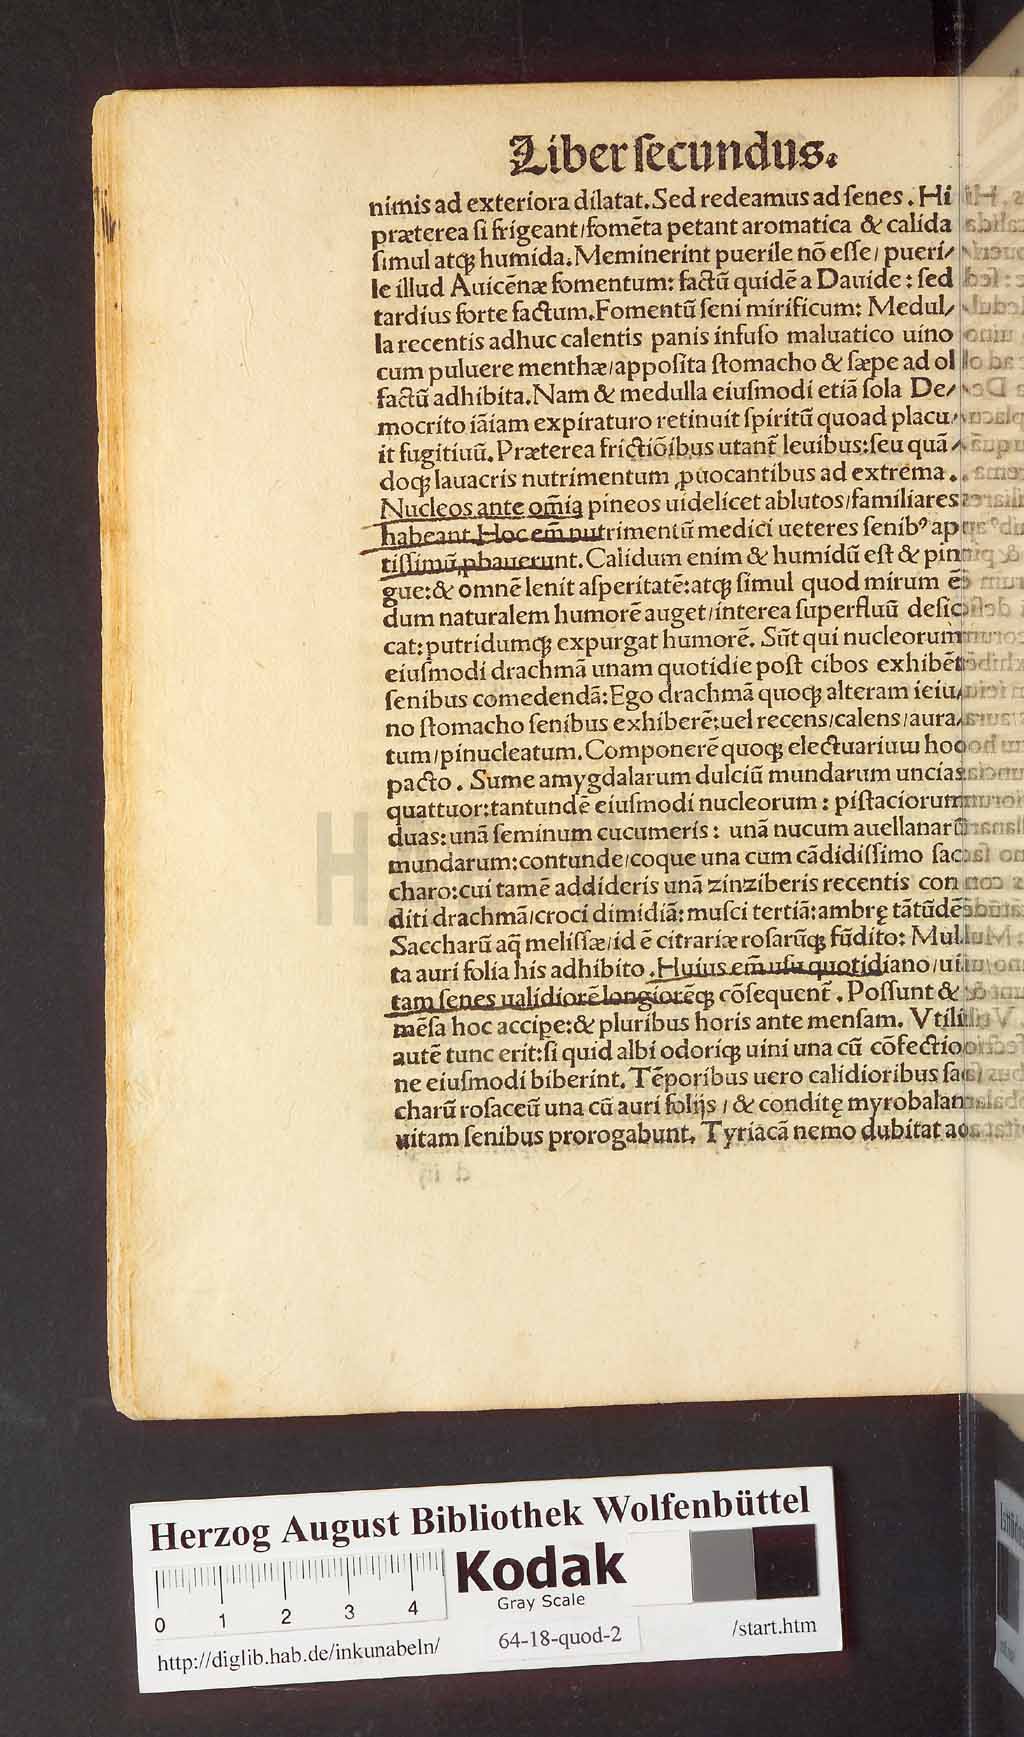 Liber ſecundus.
nimis ad exteriora dilatat. Sed redeamus ad ſenes. Hi
præterea ſi frigeant/fomēta petant aromatica & calida
ſimul atqꝫ humida. Meminerint puerile nō eſſe/ pueri/
le illud Auicēnæ fomentum: factū quidē a Dauide: ſed
tardius forte factum. Fomentū ſeni mirificum: Medul/
la recentis adhuc calentis panis infuſo maluatico uino
cum puluere menthæ/appoſita ſtomacho & ſæpe ad ol
factū adhibita. Nam & medulla eiuſmodi etiā ſola De/
mocrito iāiam expiraturo retinuit ſpiritū quoad placu/
it fugitiuū. Præterea frictiōibus utant̃ leuibus: ſeu quā/
doqꝫ lauacris nutrimentum ꝓuocantibus ad extrema.
Nucleos ante om̄ia pineos uidelicet ablutos/familiares
habeant. Hoc em̄ nutrimentū medici ueteres ſenibꝰ ap
tiſſimū ꝓbauerunt. Calidum enim & humidū eſt & pin
gue: & omnē lenit aſperitatē: atqꝫ ſimul quod mirum ē
dum naturalem humorē auget/interea ſuperfluū deſic
cat: putridumqꝫ expurgat humorē. Sūt qui nucleorum
eiuſmodi drachmā unam quotidie poſt cibos exhibēt
ſenibus comedendā: Ego drachmā quoqꝫ alteram ieiu/
no ſtomacho ſenibus exhiberē: uel recens/calens/aura/
tum/pinucleatum. Componerē quoqꝫ electuarium hoc
pacto. Sume amygdalarum dulciū mundarum uncias
quattuor: tantundē eiuſmodi nucleorum: piſtaciorum
duas: unā ſeminum cucumeris: unā nucum auellanarū
mundarum: contunde/coque una cum cādidiſſimo ſac
charo: cui tamē addideris unā zinziberis recentis con
diti drachmā/croci dimidiā: muſci tertiā: ambrę tātūdē
Saccharū aq̄ meliſſæ/id ē citrariæ roſarūqꝫ fūdito: Mul
ta auri folia his adhibito. Huius em̄ uſu quotidiano/ui
tam ſenes ualidiorē longiorēqꝫ cōſequent̃. Poſſunt &
mēſa hoc accipe: & pluribus horis ante menſam. Vtili
autē tunc erit: ſi quid albi odoriqꝫ uini una cū cōfectio
ne eiuſmodi biberint. Tēporibus uero calidioribus ſac
charū roſaceū una cū auri folijs / & conditę myrobalan
uitam ſenibus prorogabunt. Tyriacā nemo dubitat ad
Herzog August Bibliothek Wolfenbüttel
Kodak
Gray Scale
0 1 2 3 4
http://diglib.hab.de/inkunabeln/ 64-18-quod-2 /start.htm